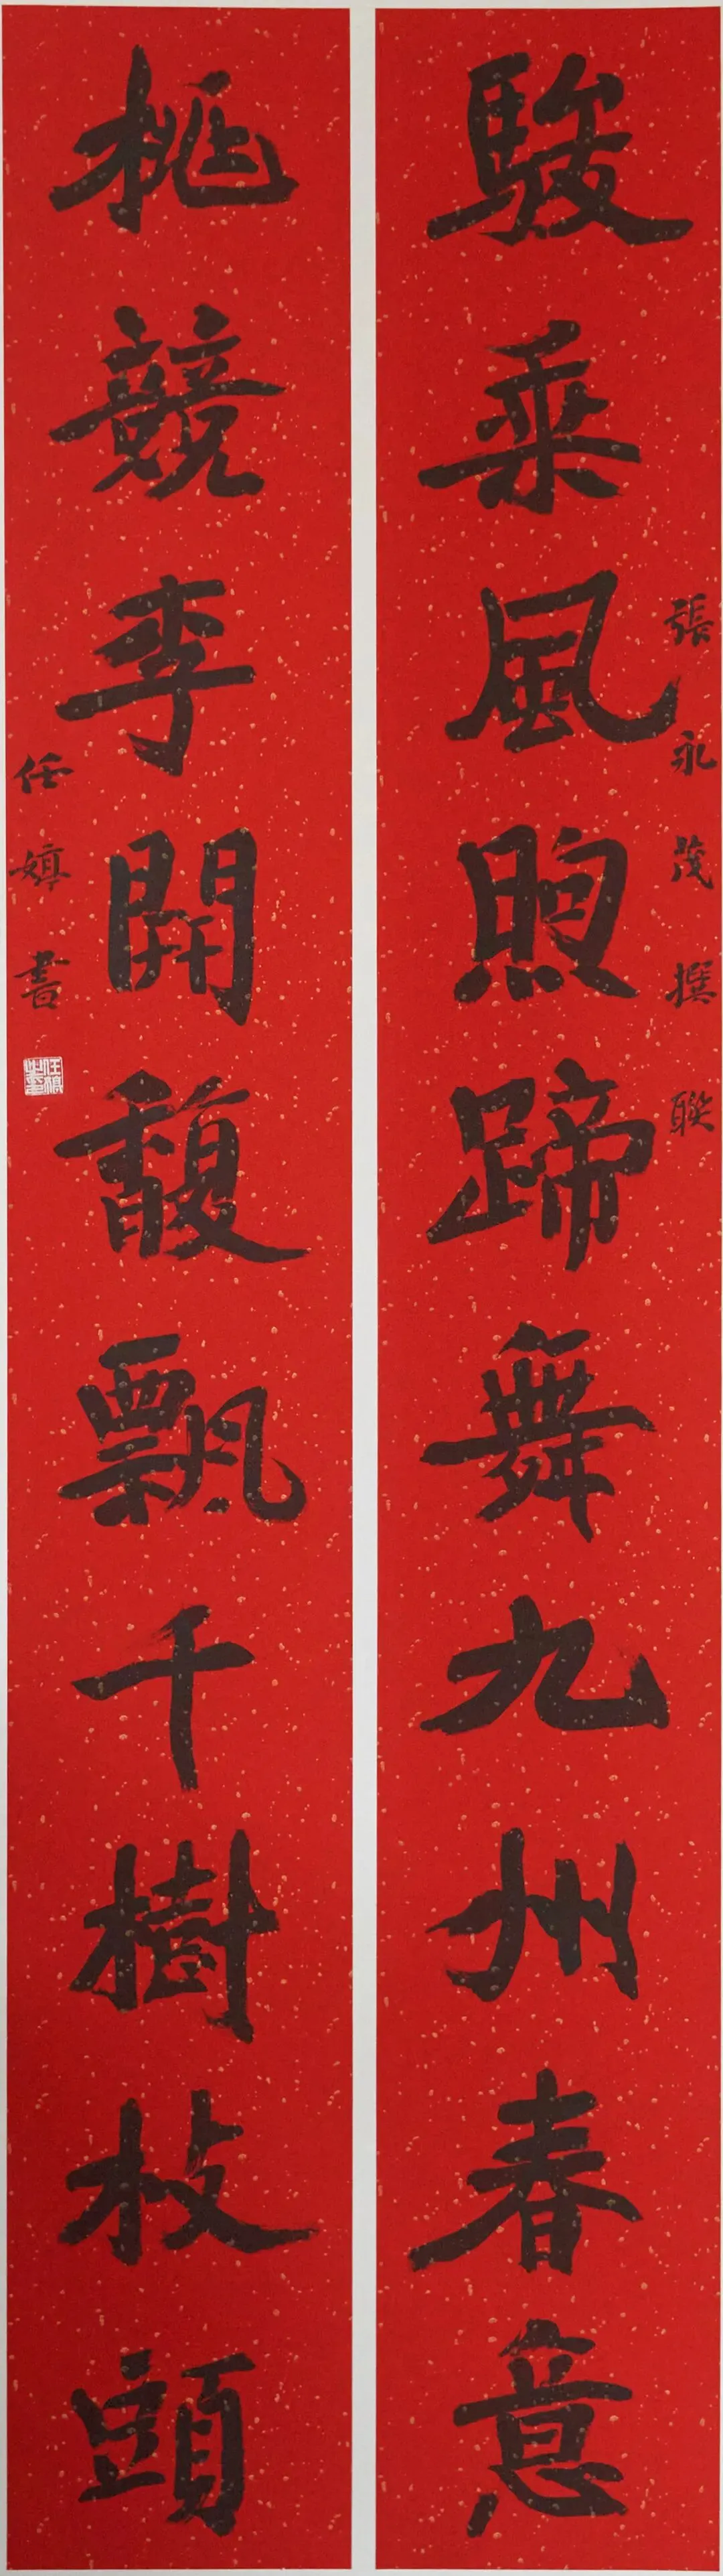 駿乘風煦蹄舞九州春意
張永茂撰聯
桃競李開馥飄千樹枝頭
任婞書